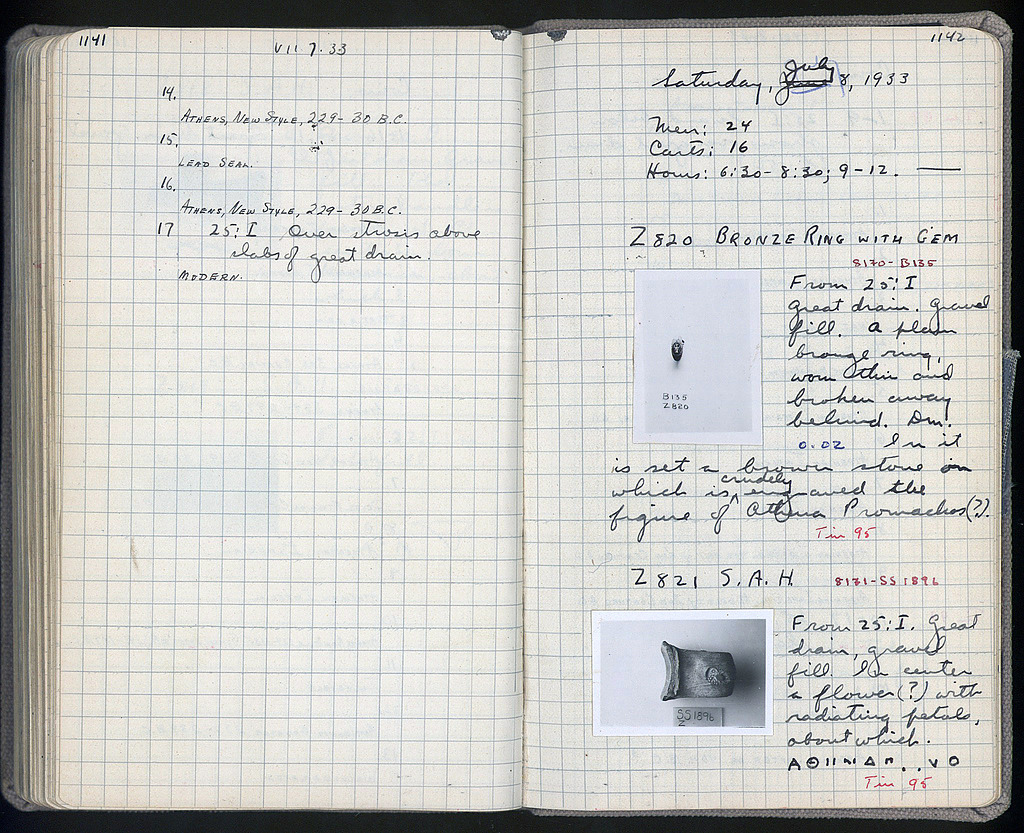 1141
VII 7.33
14.
ATHENS, NEW STYLE, 229-30 B.C.
15.
LEAD SEAL.
16.
ATHENS, NEW STYLE, 229-30 B.C.
17 25:I Over stosis above
slabs of great drain.
MODERN.
1142
Saturday, July 8, 1933
Men: 24
Carts: 16
Hours: 6:30-8:30; 9-12.
Z 820 BRONZE RING WITH GEM
8170-B135
From 25:I
Great drain. Gravel
fill. A plain
bronze ring,
worn thin and
broken away
behind. Dm.
0.02 In it
B135
Z820
is set a brown stone on
which is crudely engraved the
figure of Athena Promachos(?).
Tin 95
Z 821 S.A.H. 8171-SS1896
From 25:I. Great
drain, gravel
fill. In center
a flower(?) with
radiating petals,
about which.
SS 1896
Z
Tin 95